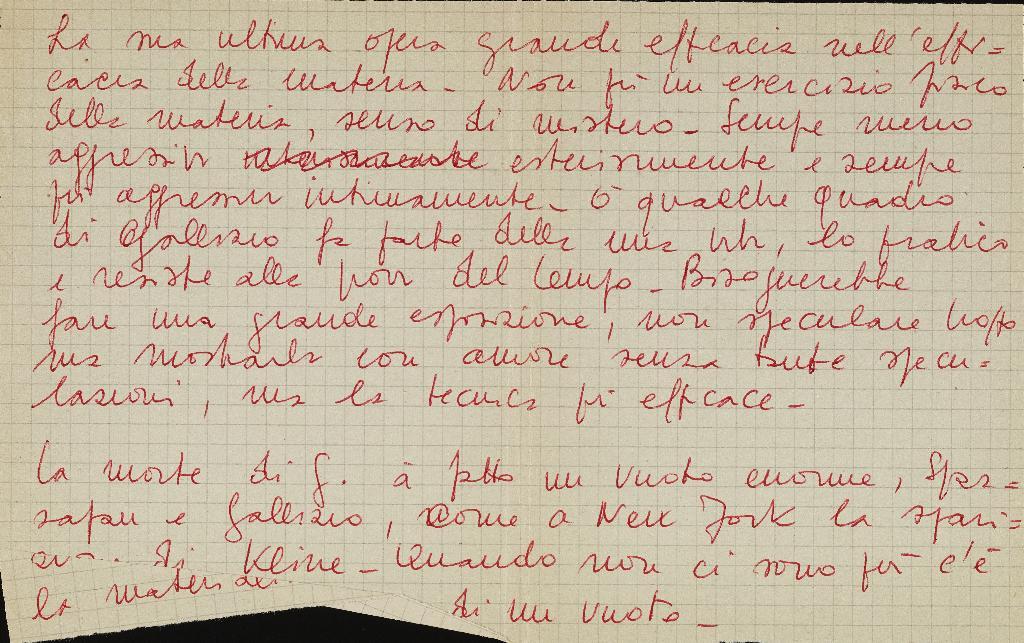 La sua ultima opera grande efficacia nell'effi=
cacia della materia - Non più un esercizio fisico
della materia, senso di mistero - Sempre meno
aggressiv esteriormente e sempre
più aggressiv intimamente - O qualche quadro
di Gallizio fa parte della mia vita, lo pratico
e resiste alla prov del tempo - Bisognerebbe
fare una grande esposizione, non speculare troppo
ma mostrarla con amore senza tante specu=
lazioni, ma la tecnica più efficace -
La morte di G. à fatto un vuoto enorme,
e Gallizio, come a New York la spari=
di Kline - Quando non ci sono più c'è
la
di un vuoto -